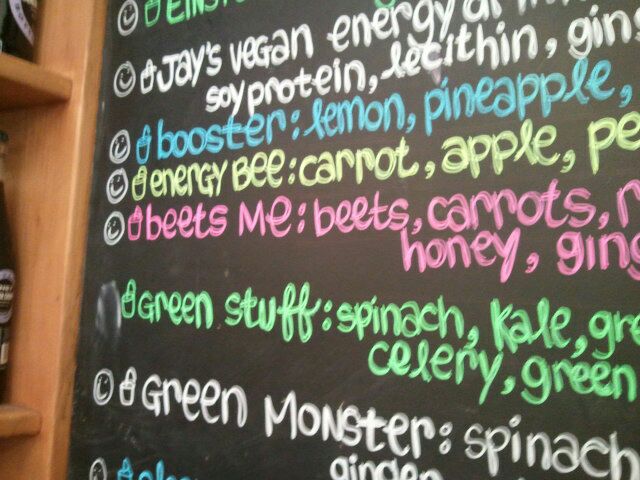 energy
Jay's vegan energy
soy protein, lecithin,
booster: lemon, pineapple,
energy Bee: carrot, apple,
beets Me: beets, carrots,
honey,
Green stuff: spinach, kale,
celery, green
Green Monster: spinach
ginger